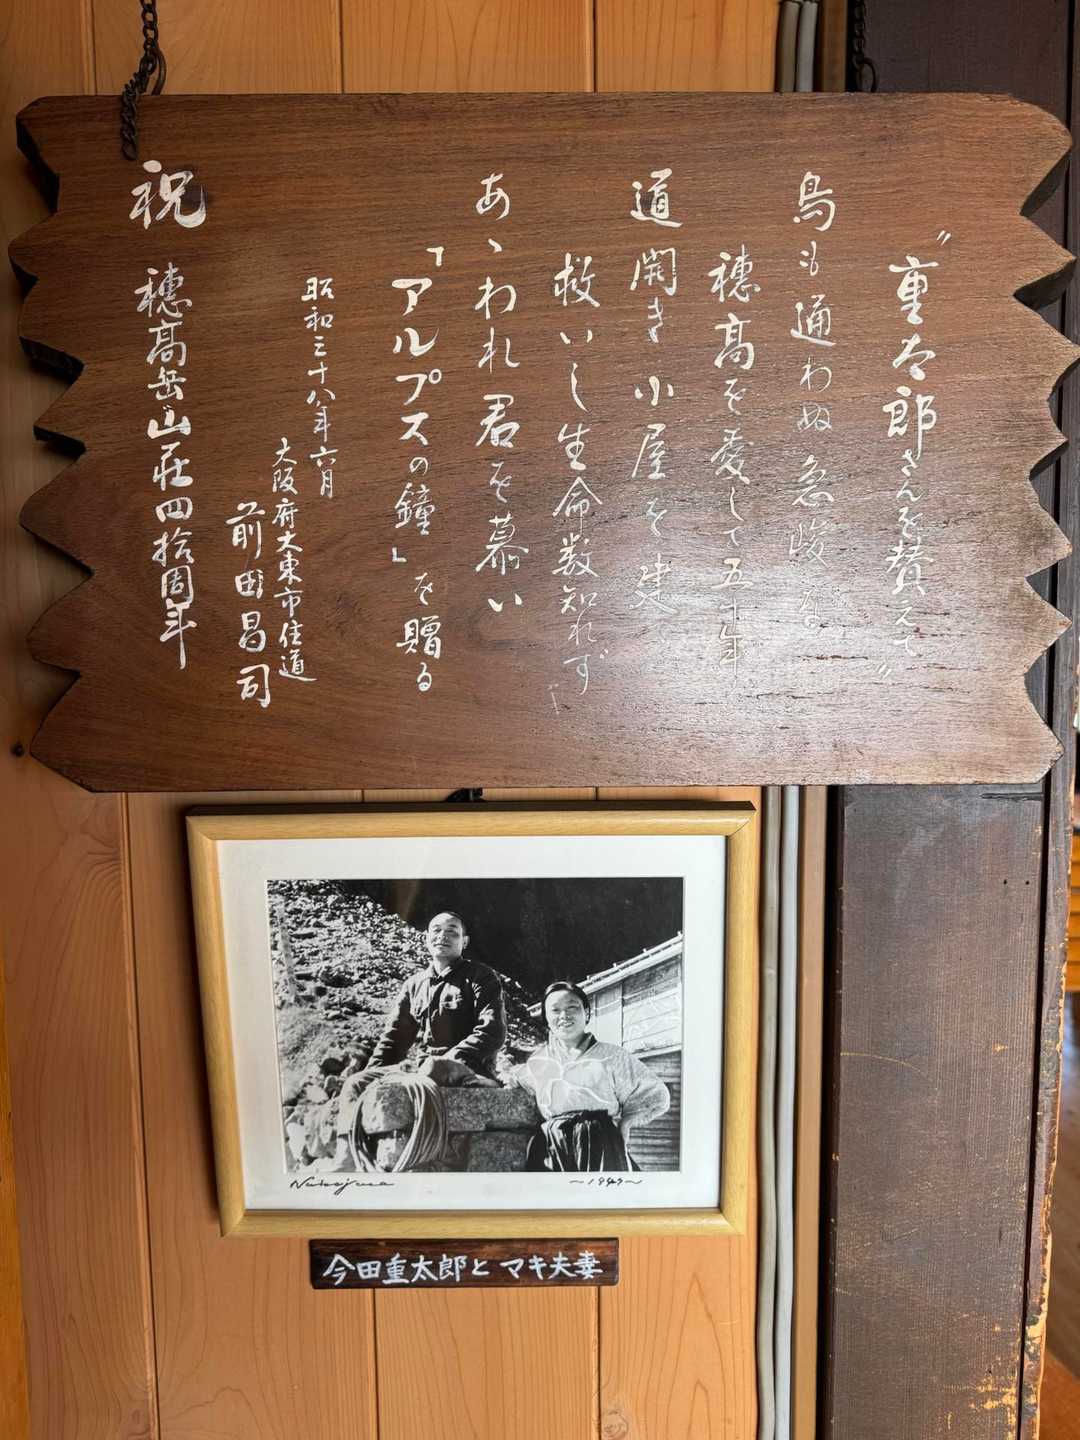 "重太郎さんを賛えて"
鳥も通わぬ急峻な
穂高を愛して五十年
道開き小屋を建て
救いし生命数知れず
あゝわれ君を慕い
「アルプスの鐘」を贈る
昭和三十八年六月
大阪府大東市住道
前田昌司
祝 穂高岳山荘四拾周年
~1947~
今田重太郎とマキ夫妻